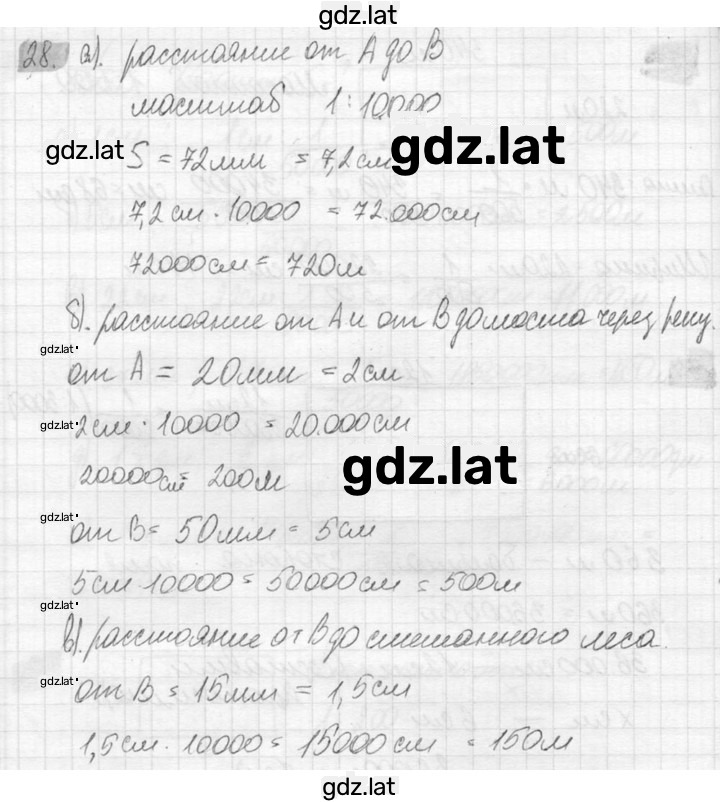 gdz.lat
28. а). расстояние от А до В
масштаб 1:10000
gdz.lat S = 72мм = 7,2см gdz.lat
7,2см · 10000 = 72.000см
72000см = 720м
б). расстояние от А и от В до моста через реку.
gdz.lat
от А = 20мм = 2см
gdz.lat 2см · 10000 = 20.000см
20000см = 200м gdz.lat
gdz.lat
от В = 50мм = 5см
5см · 10000 = 50000см = 500м
gdz.lat
в). расстояние от В до смешанного леса.
gdz.lat от В = 15мм = 1,5см
1,5см · 10000 = 15000см = 150м
gdz.lat